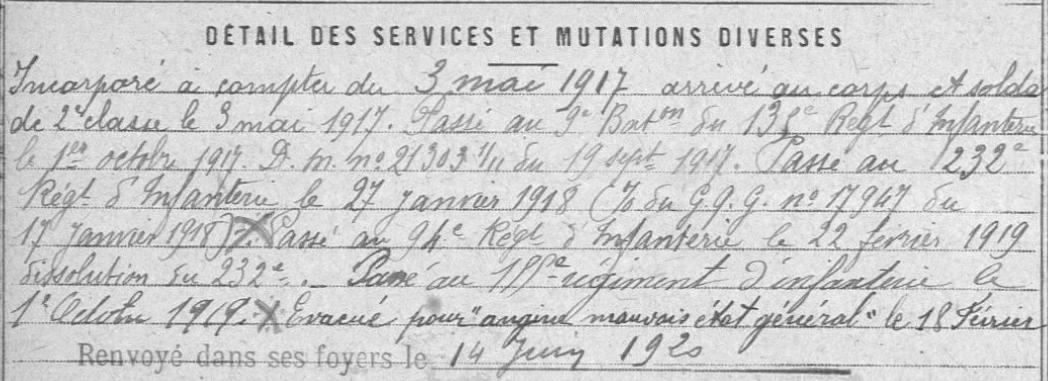 DÉTAIL DES SERVICES ET MUTATIONS DIVERSES
Incorporé à compter du 3 mai 1917 arrivé au corps et solda
de 2e classe le 3 mai 1917. Passé au 9e Baton du 138e Régt d'Infanterie
le 1er octobre 1917. D. M. no 21303 1/11 du 19 sept 1917. Passé au 232e
Régt d'Infanterie le 27 Janvier 1918 (du G.Q.G. no 17947 du
17 Janvier 1918) X. Passé au 94e Régt d'Infanterie le 22 fevrier 1919
dissolution du 232e. _ Passé au régiment d'infanterie le
1er Octobre 1919. X Evacué pour "angine mauvais état général" le 18 Février
Renvoyé dans ses foyers le 14 Juin 1920